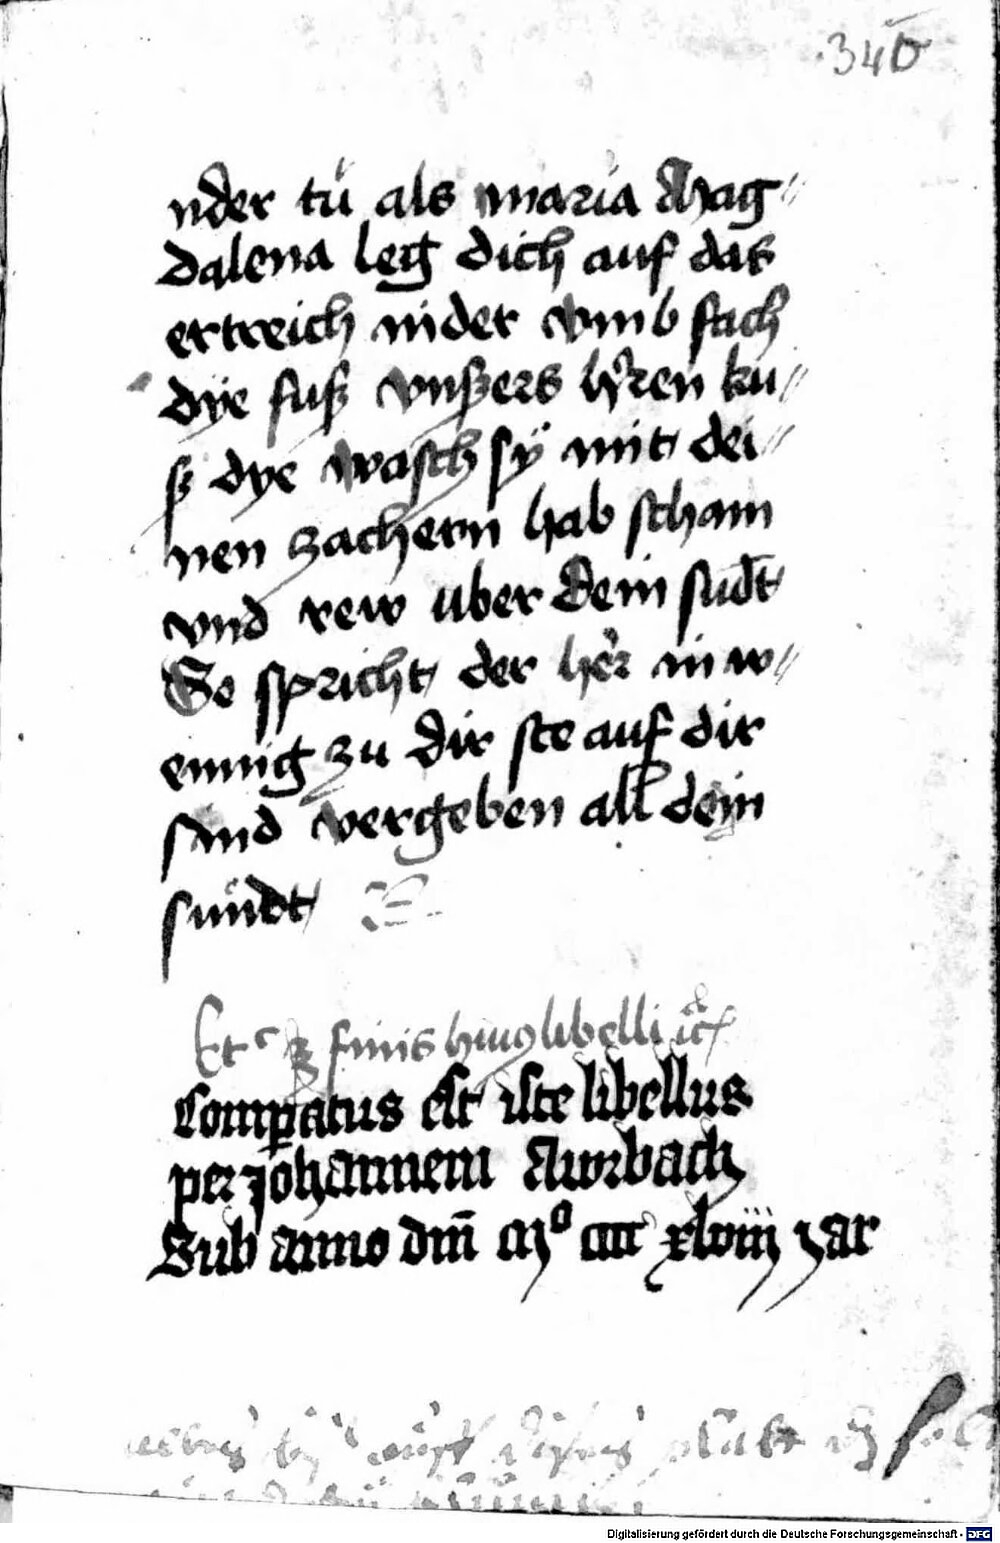 340
nder tü als maria Mag//
dalena leg dich auf das
ertreich nider vmb fach
dÿe fuß vnßers hren ku//
ß dye wasch sÿ mit dei//
nen zachern hab scham
vnd rew uber dein sudt
So spricht der her in w//
ennig zu dir ste auf dir
sind vergeben all dein
sundt
Et finis huius libelli
Comparatus est iste libellus
per Johannem Awrbach
Sub anno dm̄ Mº cccc xlviij Jar
Digitalisierung gefördert durch die Deutsche Forschungsgemeinschaft - DFG